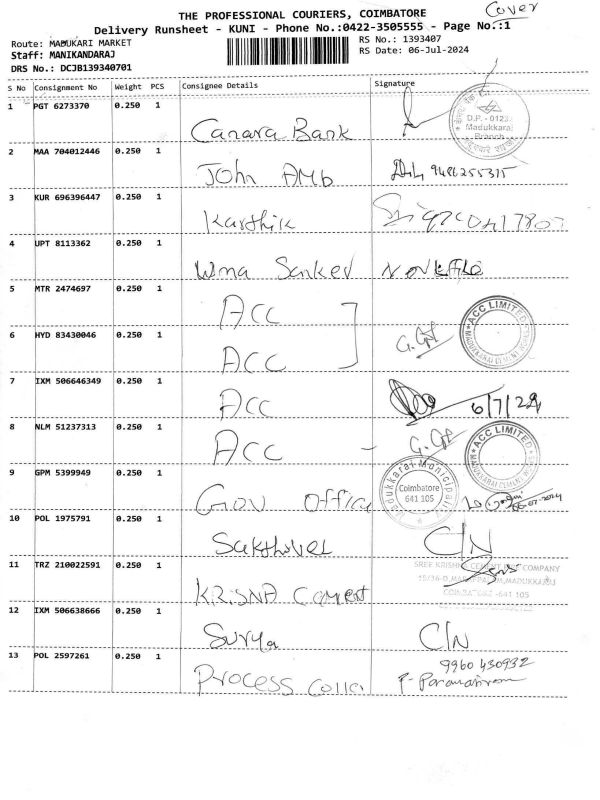 Cover
THE PROFESSIONAL COURIERS, COIMBATORE
Delivery Runsheet - KUNI - Phone No.:0422-3505555 - Page No.:1
Route: MADUKARI MARKET
RS No.: 1393407
Staff: MANIKANDARAJ
RS Date: 06-Jul-2024
DRS No.: DCJB139340701
S No Consignment No Weight PCS Consignee Details Signature
1 PGT 6273370 0.250 1
Canara Bank
D.P. - 0123
Madukkarai
Branch
2 MAA 704012446 0.250 1
John Amb 9486255315
3 KUR 696396447 0.250 1
Karthik
4 UPT 8113362 0.250 1
Uma Sanker
5 MTR 2474697 0.250 1
ACC
ACC LIMITED
6 HYD 83430046 0.250 1
ACC
7 IXM 506646349 0.250 1
ACC 6/7/24
8 NLM 51237313 0.250 1
ACC
ACC LIMITED
9 GPM 5399949 0.250 1
Gov Office
Madukkarai Municipality
Coimbatore
641 105
10 POL 1975791 0.250 1
Sakthivel C/N
11 TRZ 210022591 0.250 1
KRISNA Cement
SREE KRISHNA CEMENT COMPANY
COIMBATORE -641 105
12 IXM 506638666 0.250 1
Surya C/N
13 POL 2597261 0.250 1
Process Coller
9960 430932